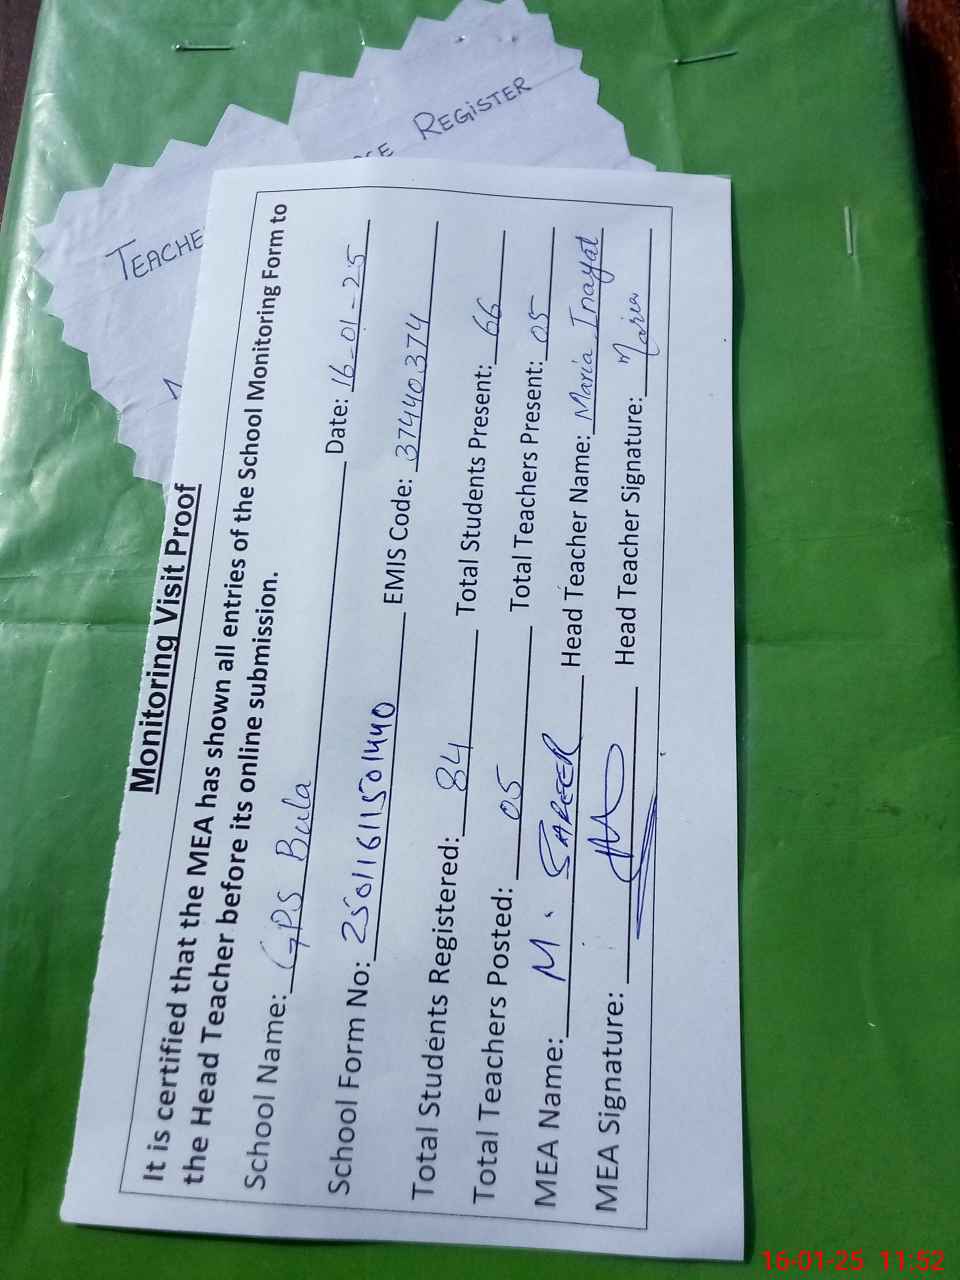 TEACHE
CE REGiSTER
Monitoring Visit Proof
It is certified that the MEA has shown all entries of the School Monitoring Form to
the Head Teacher before its online submission.
School Name: GPS Bula Date: 16-01-25
School Form No: 25011611501440 EMIS Code: 37440374
Total Students Registered: 84 Total Students Present: 66
Total Teachers Posted: 05 Total Teachers Present: 05
MEA Name: M. SAREER Head Teacher Name: Maria Inayat
MEA Signature: Head Teacher Signature: Maria
16-01-25 11:52